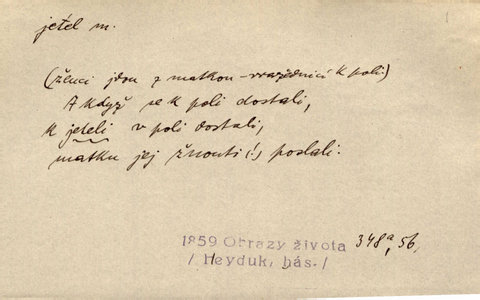 jetel m.
(ženci jdou z matkou-vražednicí k poli)
A když se k poli dostali,
k jeteli v poli dostali,
matku jej žnouti (!) poslali.
1859 Obrazy života 348a, 56,
/Heyduk, bás./